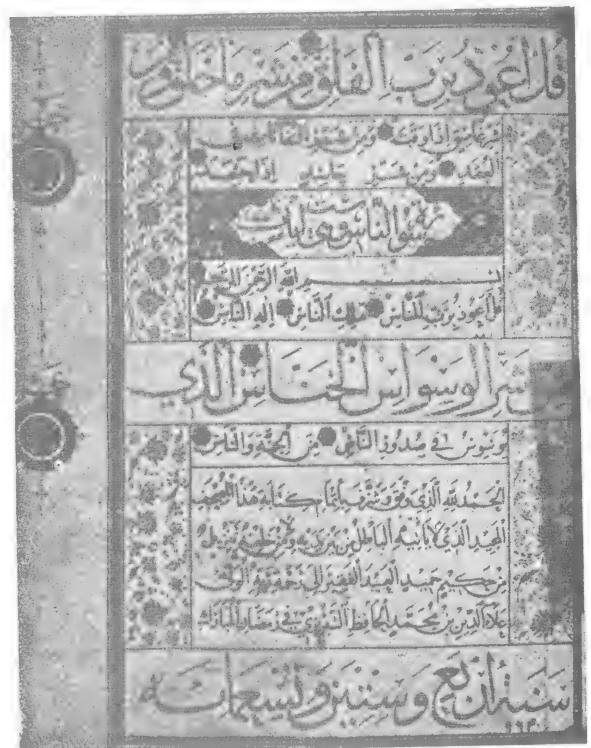 قُلْ أَعُوذُ بِرَبِّ الْفَلَقِ مِنْ شَرِّ مَا خَلَقَ وَمِنْ
شَرِّ غَاسِقٍ إِذَا وَقَبَ وَمِنْ شَرِّ النَّفَّاثَاتِ فِي
الْعُقَدِ وَمِنْ شَرِّ حَاسِدٍ إِذَا حَسَدَ
سورة الناس وهي ست آيات
بسم الله الرحمن الرحيم
قُلْ أَعُوذُ بِرَبِّ النَّاسِ مَلِكِ النَّاسِ إِلَهِ النَّاسِ
مِنْ شَرِّ الْوَسْوَاسِ الْخَنَّاسِ الَّذِي
يُوَسْوِسُ فِي صُدُورِ النَّاسِ مِنَ الْجِنَّةِ وَالنَّاسِ
الحمد لله الذي وفق وشرف بإتمام كتابة هذا المصحف
المجيد الذي لا يأتيه الباطل من بين يديه ولا من خلفه تنزيل
من حكيم حميد العبد الفقير إلى رحمة
علاء الدين بن محمد الحافظ التبريزي في رمضان المبارك
سنة أربع وستين وتسعمائة